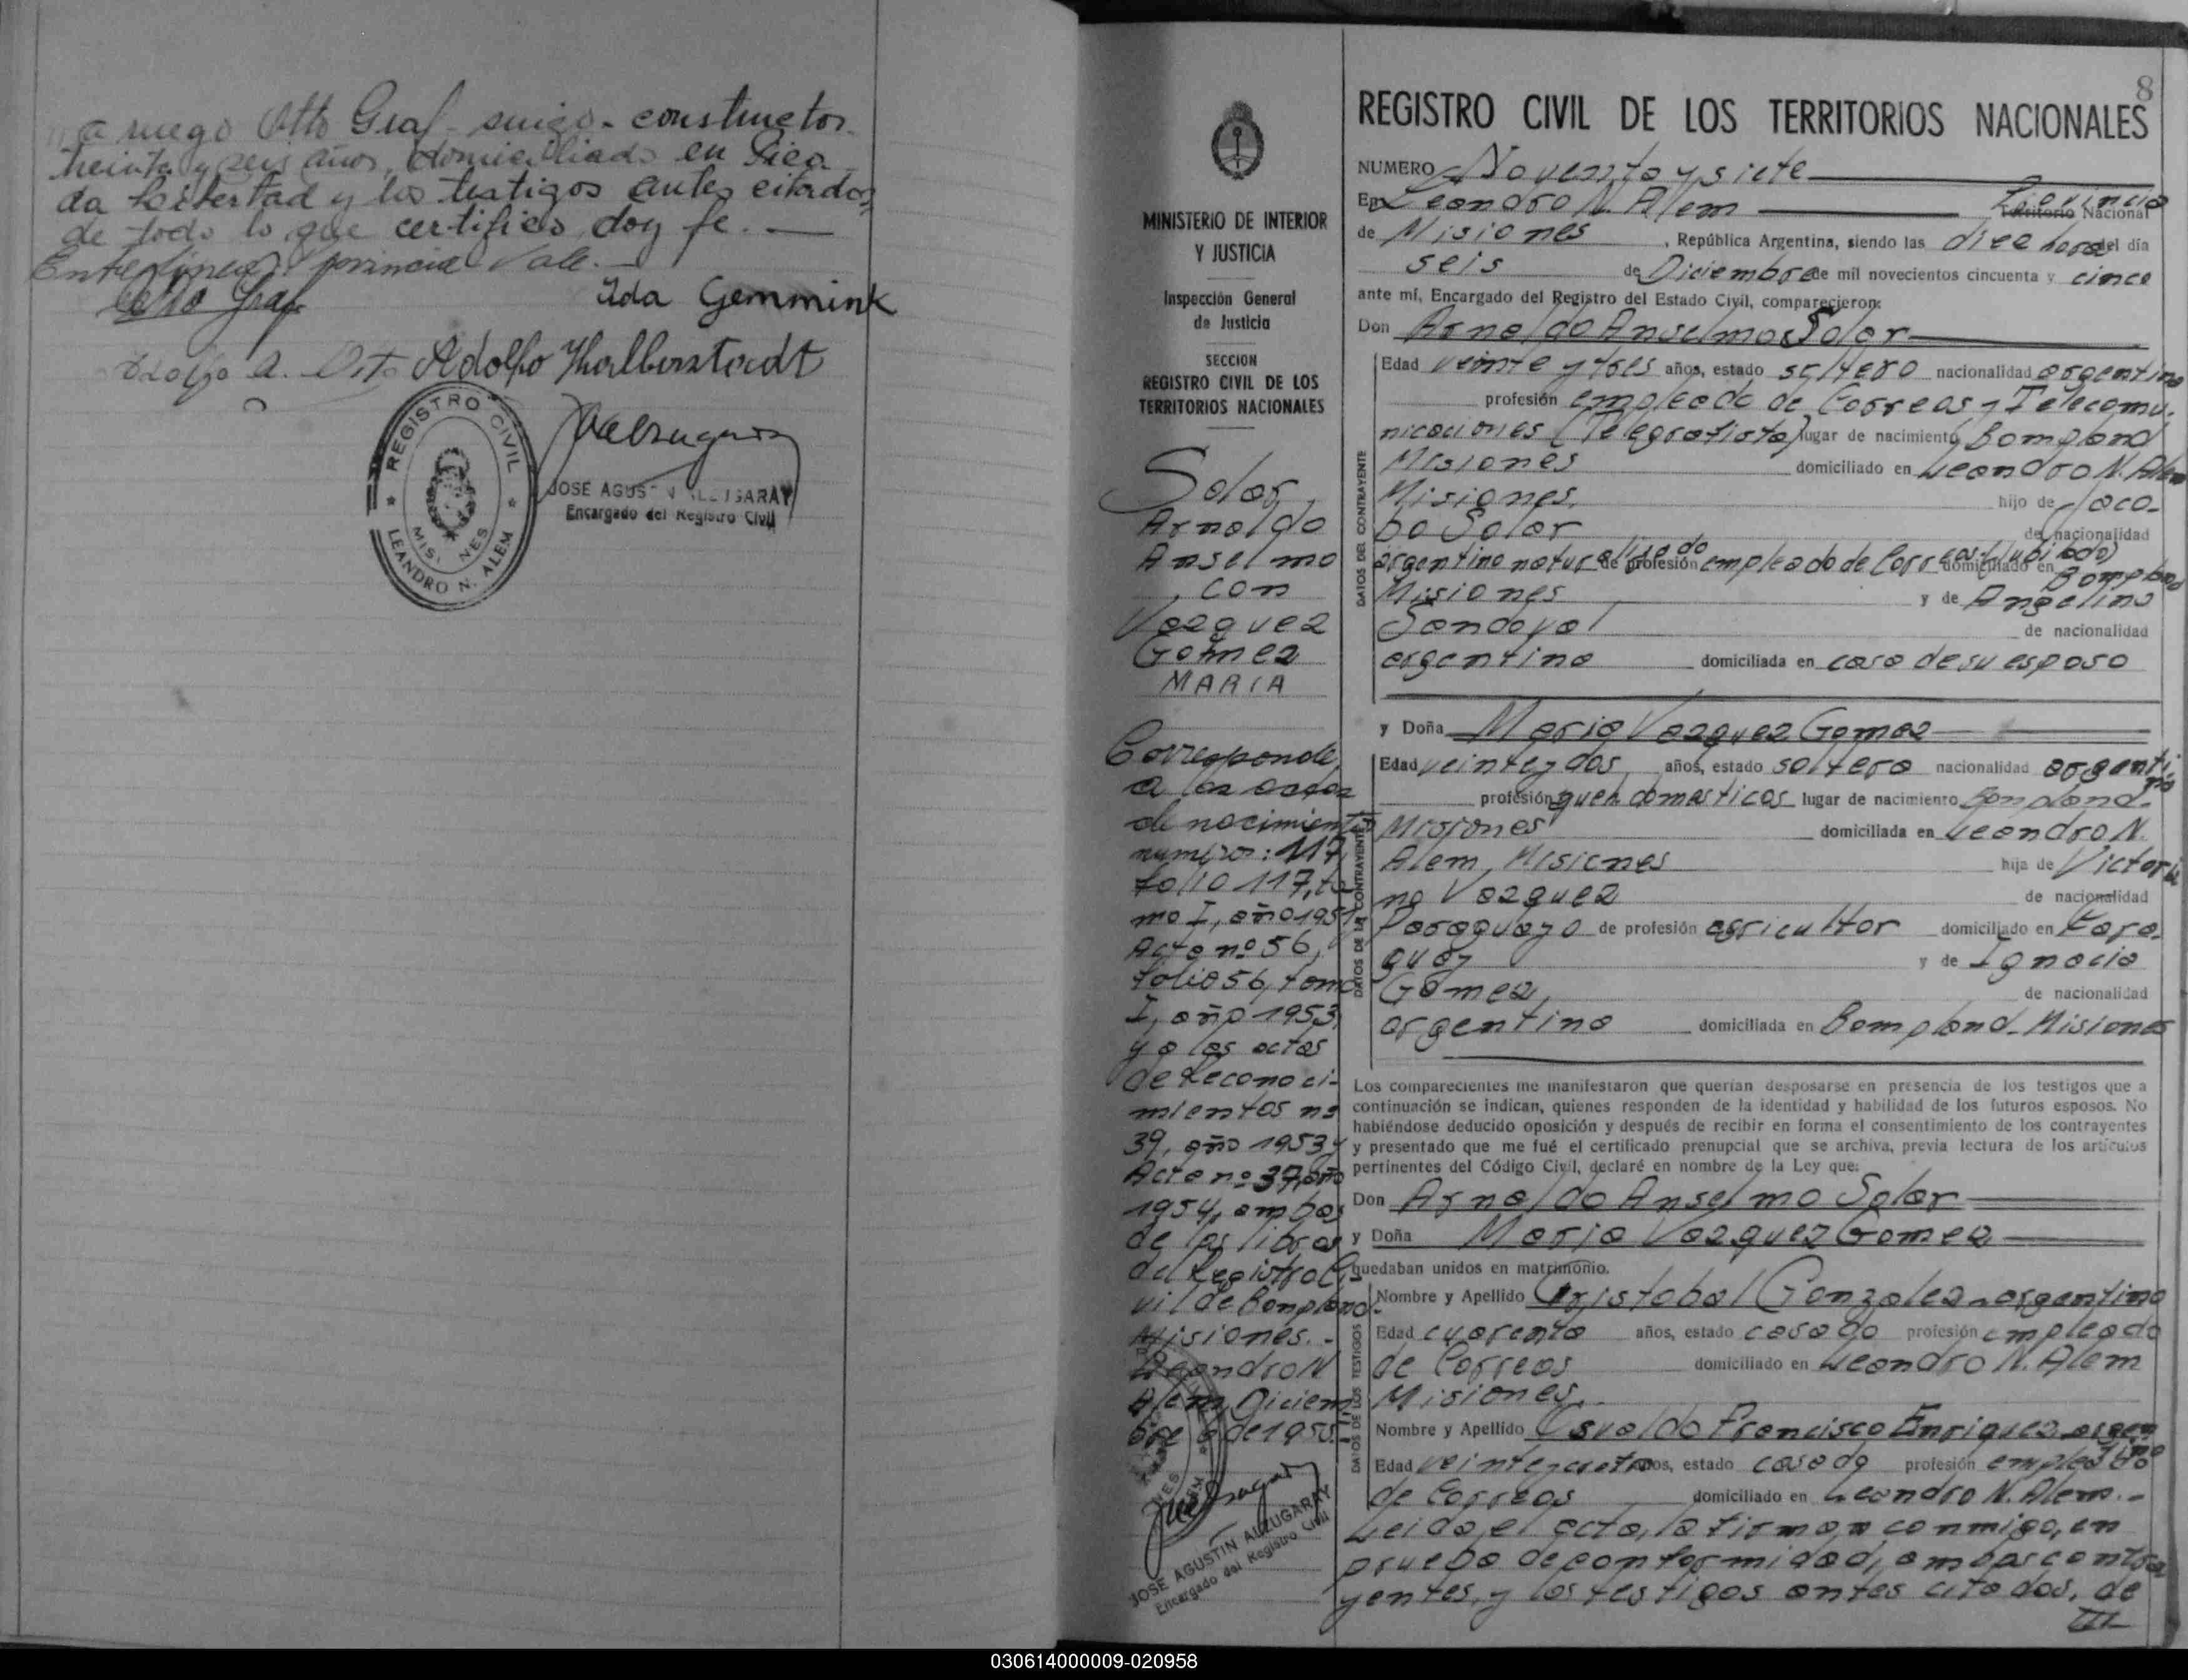 a ruego Otto Graf - suizo - constructor
treinta y seis años, domiciliado en Pica
da Libertad y los testigos antes citados,
de todo lo que certifico, doy fe. —
Entrelíneas: provincia Vale. -
Otto Graf
Ida Gemmink
Adolfo
REGISTRO CIVIL
MISIONES
LEANDRO N. ALEM
JOSE AGUSTIN ALZUGARAY
Encargado del Registro Civil
8
MINISTERIO DE INTERIOR
Y JUSTICIA
Inspección General
de Justicia
SECCION
REGISTRO CIVIL DE LOS
TERRITORIOS NACIONALES
Solar,
Arnaldo
Anselmo
con
Vazquez
Gomez
MARIA
Corresponde
a las actas
de nacimientos
numeros: 117
folio 117, to
mo I, año 1951
Acta nº 56,
folio 56, tomo
I, año 1953,
y a las actas
de Reconoci-
mientos nº
39, año 1953 y
Acta nº 37, año
1954, ambas
de los libros
del Registro Ci-
vil de Bonpland-
Misiones. -
Leandro N
Alem, Diciem
bre 6 de 1955. -
JOSE AGUSTIN ALZUGARAY
Encargado del Registro Civil
REGISTRO CIVIL DE LOS TERRITORIOS NACIONALES
NUMERO Noventa y siete
En Leandro N. Alem Provincia Territorio Nacional
de Misiones, República Argentina, siendo las diez horas del día
seis de Diciembre de mil novecientos cincuenta y cinco
ante mí, Encargado del Registro del Estado Civil, comparecieron:
Don Arnaldo Anselmo Solar
DATOS DEL CONTRAYENTE
Edad veinte y tres años, estado soltero nacionalidad argentina
profesión empleado de Correos y Telecomu-
nicaciones (Telegrafista) lugar de nacimiento Bompland
Misiones domiciliado en Leandro N. Alem
Misiones. hijo de Jaco-
bo Solar de nacionalidad
argentino naturalizado de profesión empleado de Correos (Jubilado) domiciliado en Bompland
Misiones y de Angelina
Sandoval de nacionalidad
argentina domiciliada en casa de su esposo
y Doña Maria Vazquez Gomez
DATOS DE LA CONTRAYENTE
Edad veinte y dos años, estado soltera nacionalidad argentina
profesión queh. domesticos lugar de nacimiento Bonpland-
Misiones domiciliada en Leandro N.
Alem, Misiones hija de Victoria
no Vazquez de nacionalidad
Paraguayo de profesión agricultor domiciliado en Para-
guay y de Ignacia
Gomez, de nacionalidad
argentina domiciliada en Bompland - Misiones
Los comparecientes me manifestaron que querían desposarse en presencia de los testigos que a
continuación se indican, quienes responden de la identidad y habilidad de los futuros esposos. No
habiéndose deducido oposición y después de recibir en forma el consentimiento de los contrayentes
y presentado que me fué el certificado prenupcial que se archiva, previa lectura de los artículos
pertinentes del Código Civil, declaré en nombre de la Ley que:
Don Arnaldo Anselmo Solar
y Doña Maria Vazquez Gomez
quedaban unidos en matrimonio.
DATOS DE LOS TESTIGOS
Nombre y Apellido Cristobal Gonzalez - argentino
Edad cuarenta años, estado casado profesión empleado
de Correos domiciliado en Leandro N. Alem
Misiones.
Nombre y Apellido Osvaldo Francisco Enriquez argentino
Edad veinte y cuatro años, estado casado profesión empleado
de Correos domiciliado en Leandro N. Alem. -
Leida el acta, la firman conmigo, en
prueba de conformidad, ambos contra
yentes, y los testigos antes citados, de
///
030614000009-020958